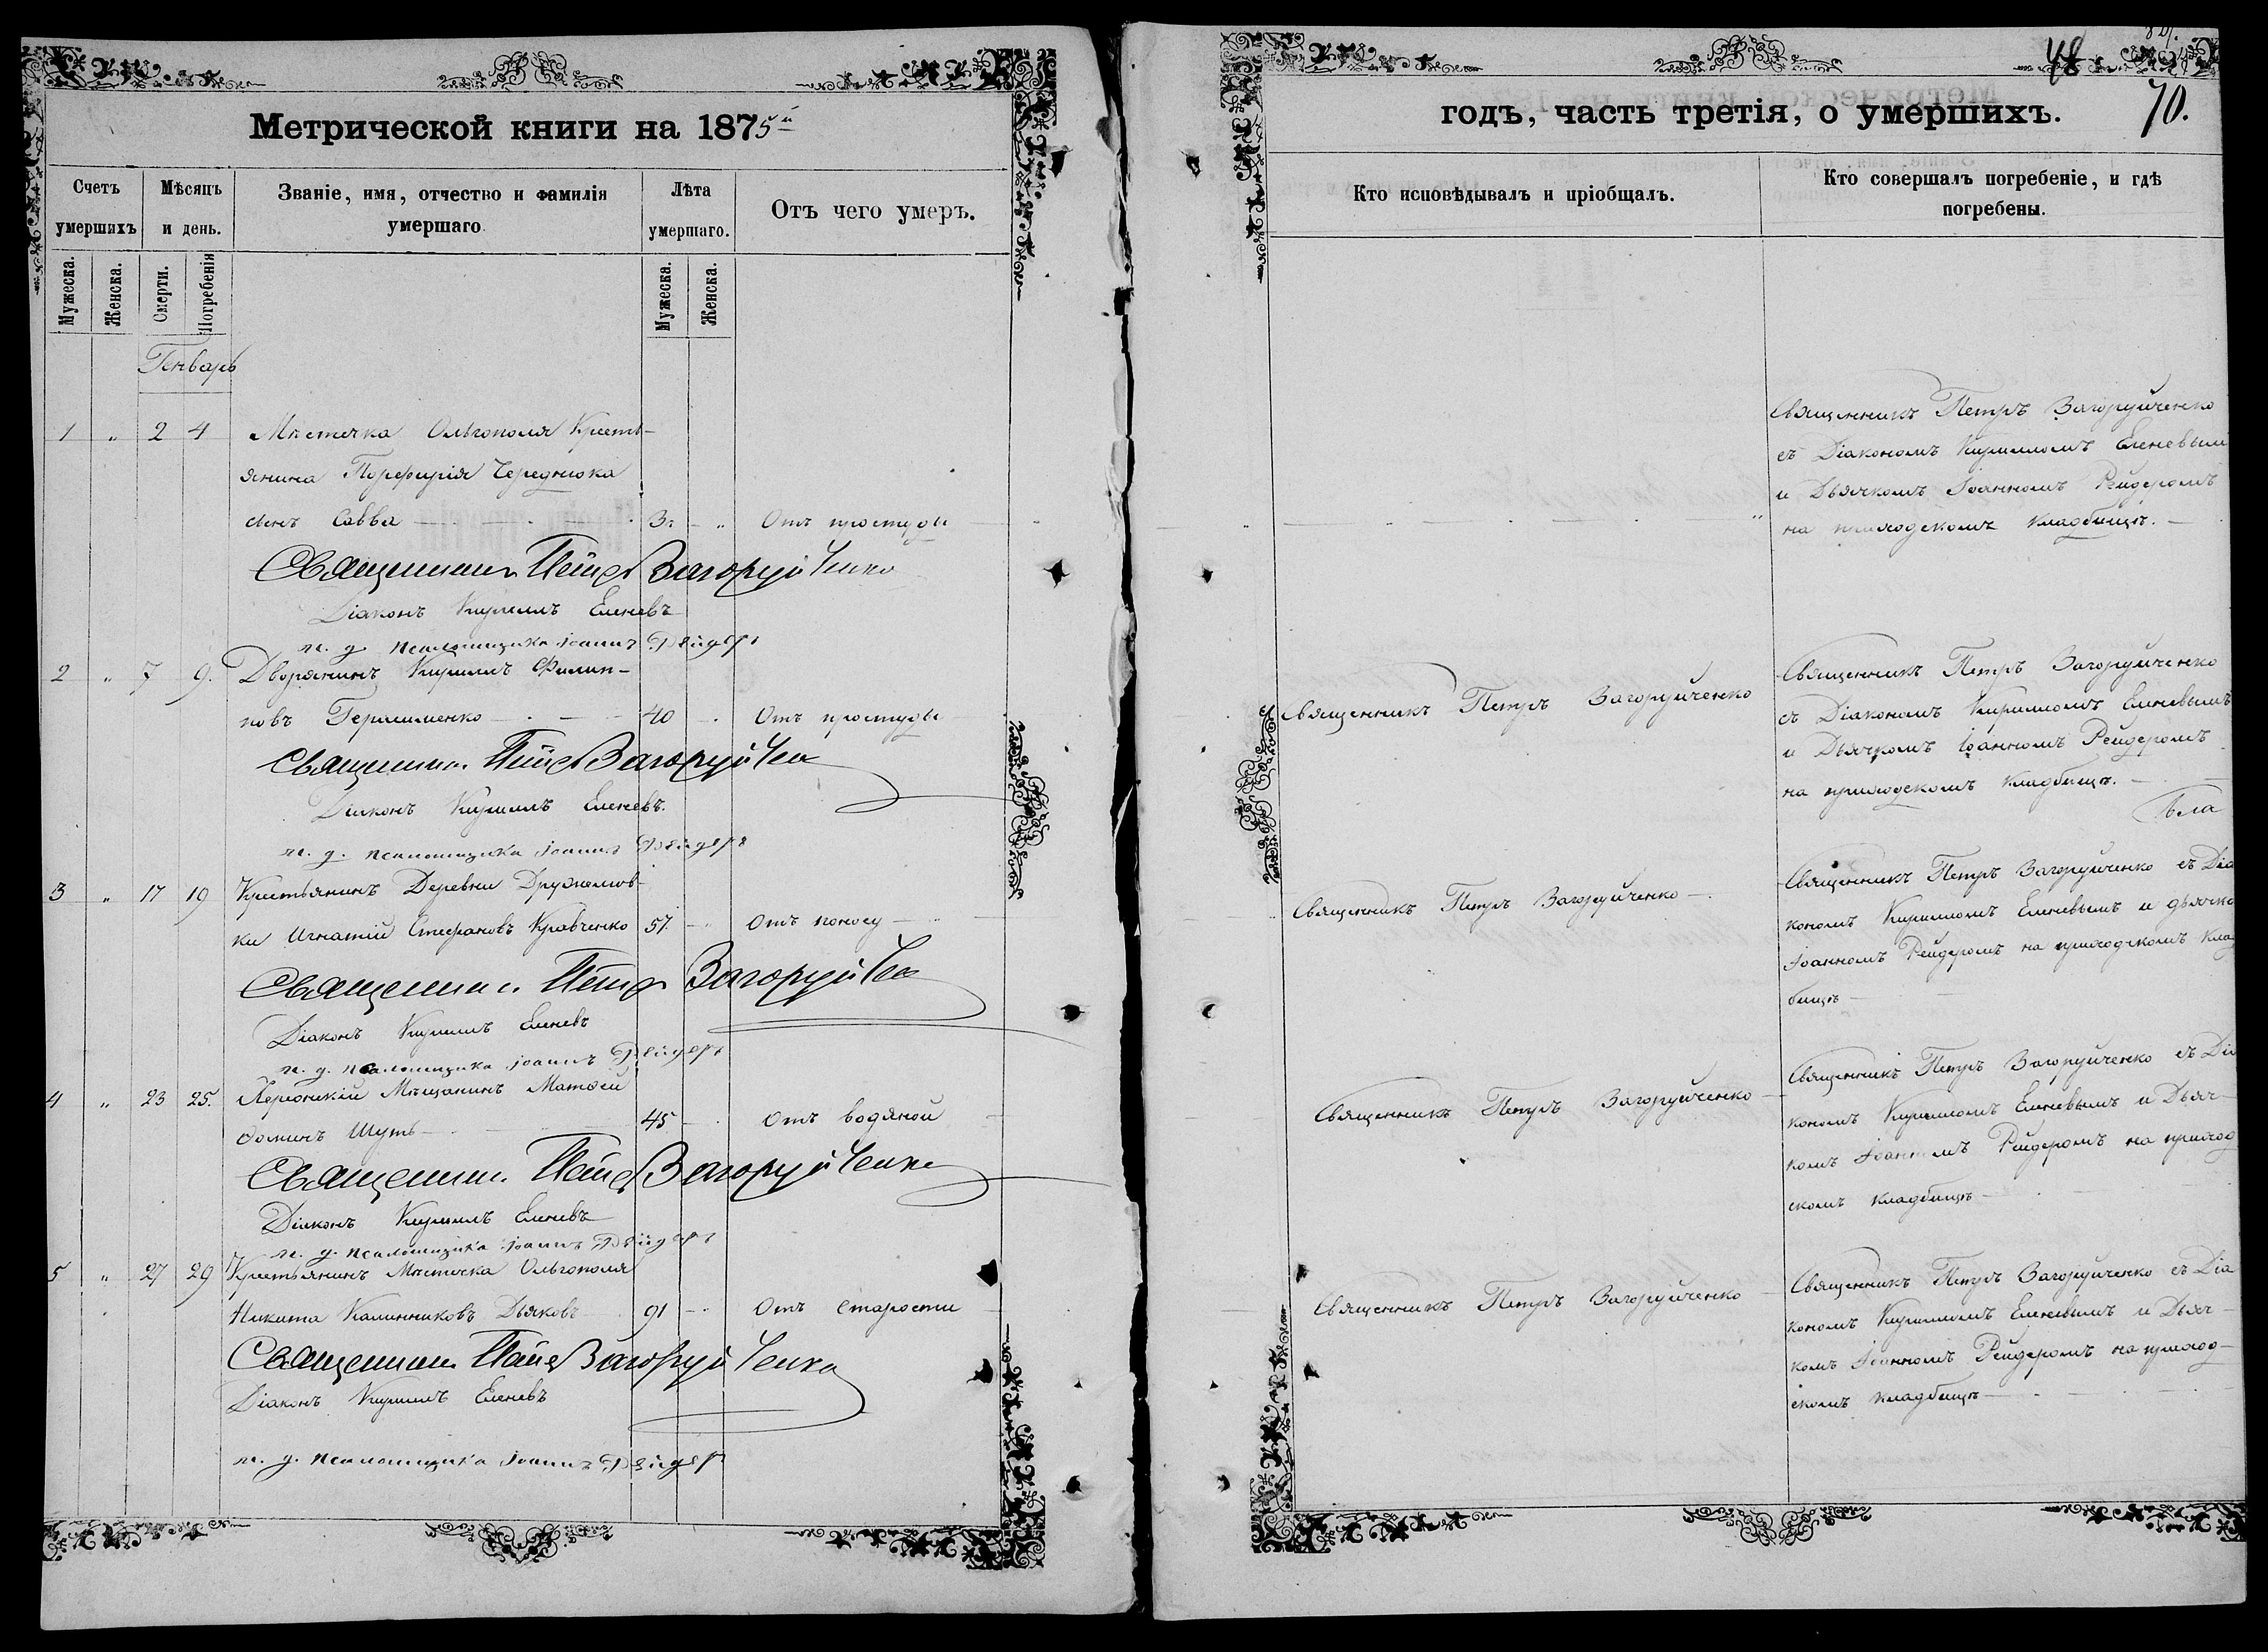 Метрической книги на 1875й
Счетъ умершихъ
Мѣсяцъ и день.
Званіе, имя, отчество и фамилія умершаго
Лѣта умершаго.
Отъ чего умеръ.
Мужеска.
Женска.
Смерти.
Погребенія
Мужеска.
Женска.
Генварь
1 " 2 4 Мѣстечка Ольгополя Кресть-
янина Порфирія Чередника
сынъ Савва 3 " Отъ простуды
Священникъ Петръ Загоруйченко
Діаконъ Кириллъ Еленевъ
и. д. псаломщика Іоаннъ Рейдеръ
2 " 7 9. Дворянинъ Кириллъ Филип-
повъ 40 Отъ простуды
Священникъ Петръ Загоруйченко
Діаконъ Кириллъ Еленевъ.
и. д. псаломщика Іоаннъ Рейдеръ
3 " 17 19 Крестьянинъ Деревни
ки Игнатій Стефановъ Кравченко 57. " Отъ поносу
Священникъ Петръ Загоруйченко
Діаконъ Кириллъ Еленевъ
и. д. псаломщика Іоаннъ Рейдеръ
4 " 23 25. Херсонскій Мѣщанинъ Матѳей
Ѳоминъ Шуть 45 Отъ водяной
Священникъ Петръ Загоруйченко
Діаконъ Кириллъ Еленевъ
и. д. псаломщика Іоаннъ Рейдеръ
5 " 27 29 Крестьянинъ Мѣстечка Ольгополя
Никита Калинниковъ Дьяковъ 91 " Отъ Старости
Священникъ Петръ Загоруйченко
Діаконъ Кириллъ Еленевъ
и. д. псаломщика Іоаннъ Рейдеръ
48
70.
годъ, часть третія, о умершихъ.
Кто исповѣдывалъ и пріобщалъ.
Кто совершалъ погребеніе, и гдѣ погребены.
Священникъ Петръ Загоруйченко
съ Діакономъ Кирилломъ Еленевым
и Дьячкомъ Іоанномъ Рейдеромъ
на приходскомъ кладбищѣ.
Священникъ Петръ Загоруйченко
Священникъ Петръ Загоруйченко
съ Діакономъ Кирилломъ Еленевымъ
и Дьячкомъ Іоанномъ Рейдеромъ
на приходскомъ кладбищѣ.
Бла
Священникъ Петръ Загоруйченко
Священникъ Петръ Загоруйченко съ Діа
кономъ Кирилломъ Еленевымъ и дьячко
Іоанномъ Рейдеромъ на приходскомъ клад
бищѣ
Священникъ Петръ Загоруйченко
Священникъ Петръ Загоруйченко съ Діа
кономъ Кирилломъ Еленевымъ и Дьяч-
комъ Іоанномъ Рейдеромъ на приход
скомъ кладбищѣ
Священникъ Петръ Загоруйченко
Священникъ Петръ Загоруйченко съ Діа
кономъ Кирилломъ Еленевымъ и Дьяч-
комъ Іоанномъ Рейдеромъ на приход-
скомъ кладбищѣ